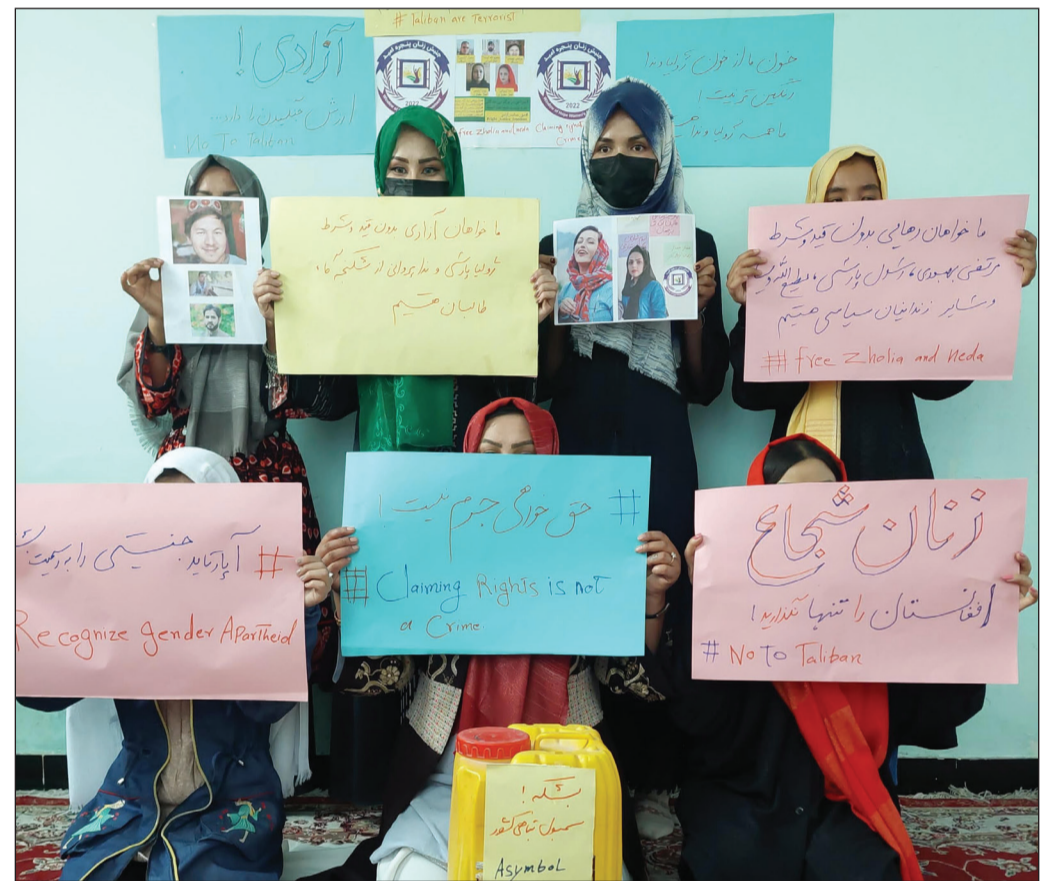 # Taliban are Terrorist
آزادی!
ارزش جنگیدن را دارد
No To Taliban
جنبش زنان پنجره امید
2022
2022
Free Zholia and neda Claiming
Crime
خون ما از خون ژولیا و ندا
رنگین تر نیست!
ما همه ژولیا و ندا
ما خواهان آزادی بدون قید و شرط
ژولیا پارسی و ندا پروانی از شکنجه گاه
طالبان هستیم
ما خواهان رهایی بدون قید و شرط
مرتضی بهبودی، رسول پارسی، مطیع الله ویسا
و سایر زندانیان سیاسی هستیم
## free Zholia and Neda
# آپارتاید جنسیتی را به رسمیت
Recognize gender Apartheid
# حق خواهی جرم نیست!
# Claiming Rights is not
a Crime
زنان شجاع
افغانستان را تنها نگذارید!
# No To Taliban
بشکه!
سمبول تباهی کشور
Asymbol